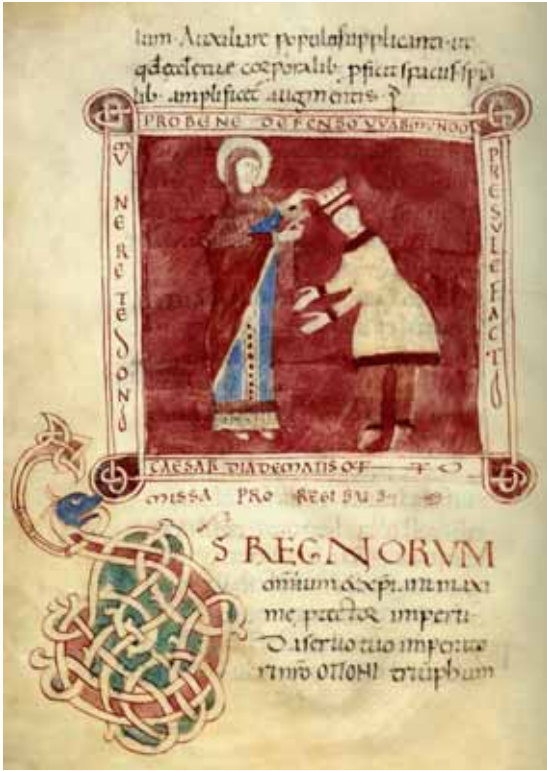 tum. Auxiliare populo supplicanti ut
corporalib. pficit spatiis. spi
lib. amplificet augmentis.
PRO BENE DEFENSO VVARMVNDO
PRESVLE FACTO
MVNERE TE DONO
CAESAR DIADEMATIS OTTO
MISSA PRO REGIBUS
S REGNORVM
omnium & xpiani maxi
me ptector imperii
Da servo tuo imperato
ri nro OTTONI triuphum